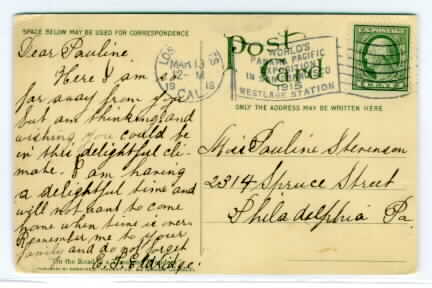 SPACE BELOW MAY BE USED FOR CORRESPONDENCE
Dear Pauline.
Here I am so
far away from you
but am thinking and
wishing you could be
in this delightful cli-
mate. I am having
a delightful time and
will not want to come
home when time is over.
Remember me to your
family and do not forget
E. S. Eldridge.
On the Road
Post Card
LOS
MAR 13
12-M
CAL.
WORLD'S
PANAMA PACIFIC
EXPOSITION
IN
1915
WESTLAKE STATION
U.S. POSTAGE
ONLY THE ADDRESS MAY BE WRITTEN HERE
Miss Pauline Stevenson
2314 Spruce Street
Philadelphia Pa.